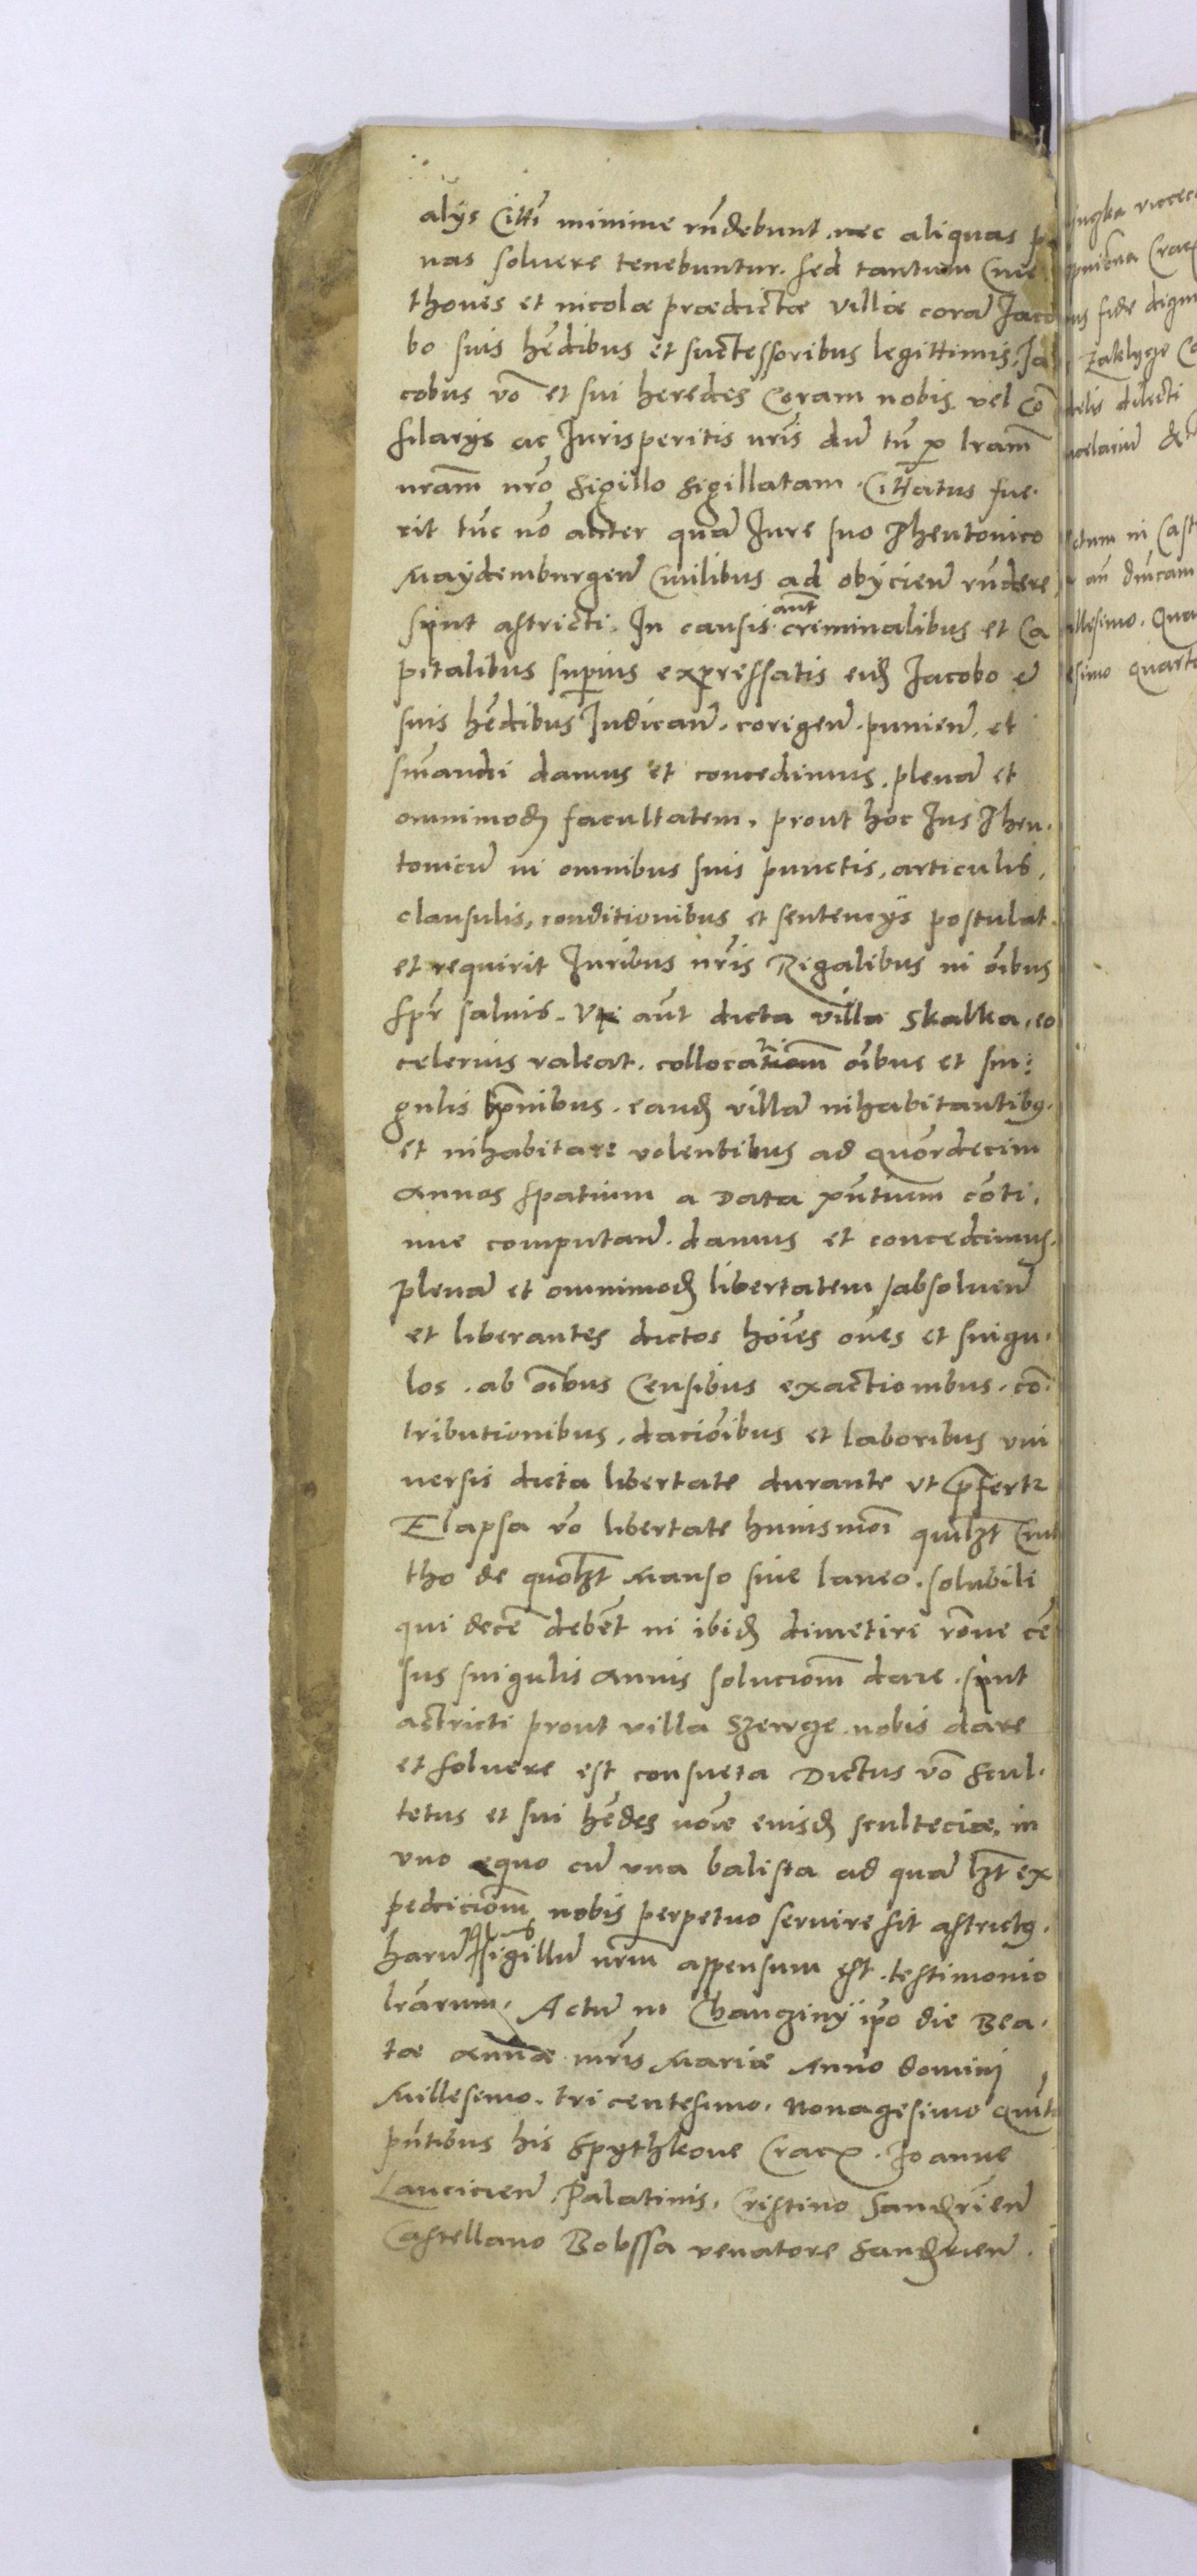 alys Citti minime rñdebunt. nec aliquas pę
nas soluere tenebuntur. sed tantum Cme
thones et incolæ prædictæ villæ corã Jaco
bo suis hẽdibus et suctessoribus legittimis. Ja
cobus vo͂ et sui heredes Coram nobis vel co͂
siliarys ac Jurisperitis nr͂is dum tñ p lram͂
nram͂ nr͂o sigillo sigillatam. Cittatus fue-
rit tũc no͂ aliter quã Jure suo Theutonico
Maydemburgeñ Cuilibus ad obycieñ rñdere
sint astricti. In causis aũt criminalibus et Ca
pitalibus superius expressatis eid Jacobo et
suis hẽdibus Judicañ. corigeñ. punieñ. et
smandi damus et concedimus. plenã et
omnimod facultatem. prout hoc Jus Theu-
tonicũ in omnibus suis punctis, articulis,
clausulis, conditionibus et sentencys postulat.
et requirit Juribus nr͂is Regalibus in oĩbus
spr saluis. Vt aũt dicta villa Skalka, eo
celerius valeat. collocationem oĩbus et sin:
gulis hominibus. eand villã inhabitantibꝰ.
et inhabitare volentibus ad quordecim
annos spatium a Data pñtium cõti-
nue computañ. damus et concedimus.
plenã et omnimod libertatem absolueñ
et liberantes dictos hoĩes oẽs et singu-
los. ab oĩbus Censibus exactionibus. co͂-
tributionibus, daciõibus et laboribus vni
uersis dicta libertate durante vt pfert2
Elapsa vo͂ libertate huiusmoi quilzt Cme
tho de quolzt Manso siue laneo. solubili
qui decẽ debẽt in ibid dimetiri rõne cẽ
sus singulis annis solucionem dare. sint
astricti prout villa Szerzge nobis dare
et soluere est consueta Dictus vo͂ Scul-
tetus et sui hẽdes noĩe eiusd scultecie, in
vno equo cũ vna balista ad quã lzt ex
pedicionem nobis perpetuo seruire sit astrictꝰ.
harũ quibus sigillũ nr͂m appensum est. testimonio
lr͂arum. Actũ in Chanziny ip͂o die Bea-
tæ annæ mr͂is Mariæ Anno domini
Millesimo. tricentesimo. Nonagesimo Quinto
pñtibus his Spythkone Cracx. Joanne
Lancicieñ. Palatinis. Cristino Sandrieñ
Castellano Bobssa venatore Sandrieñ.